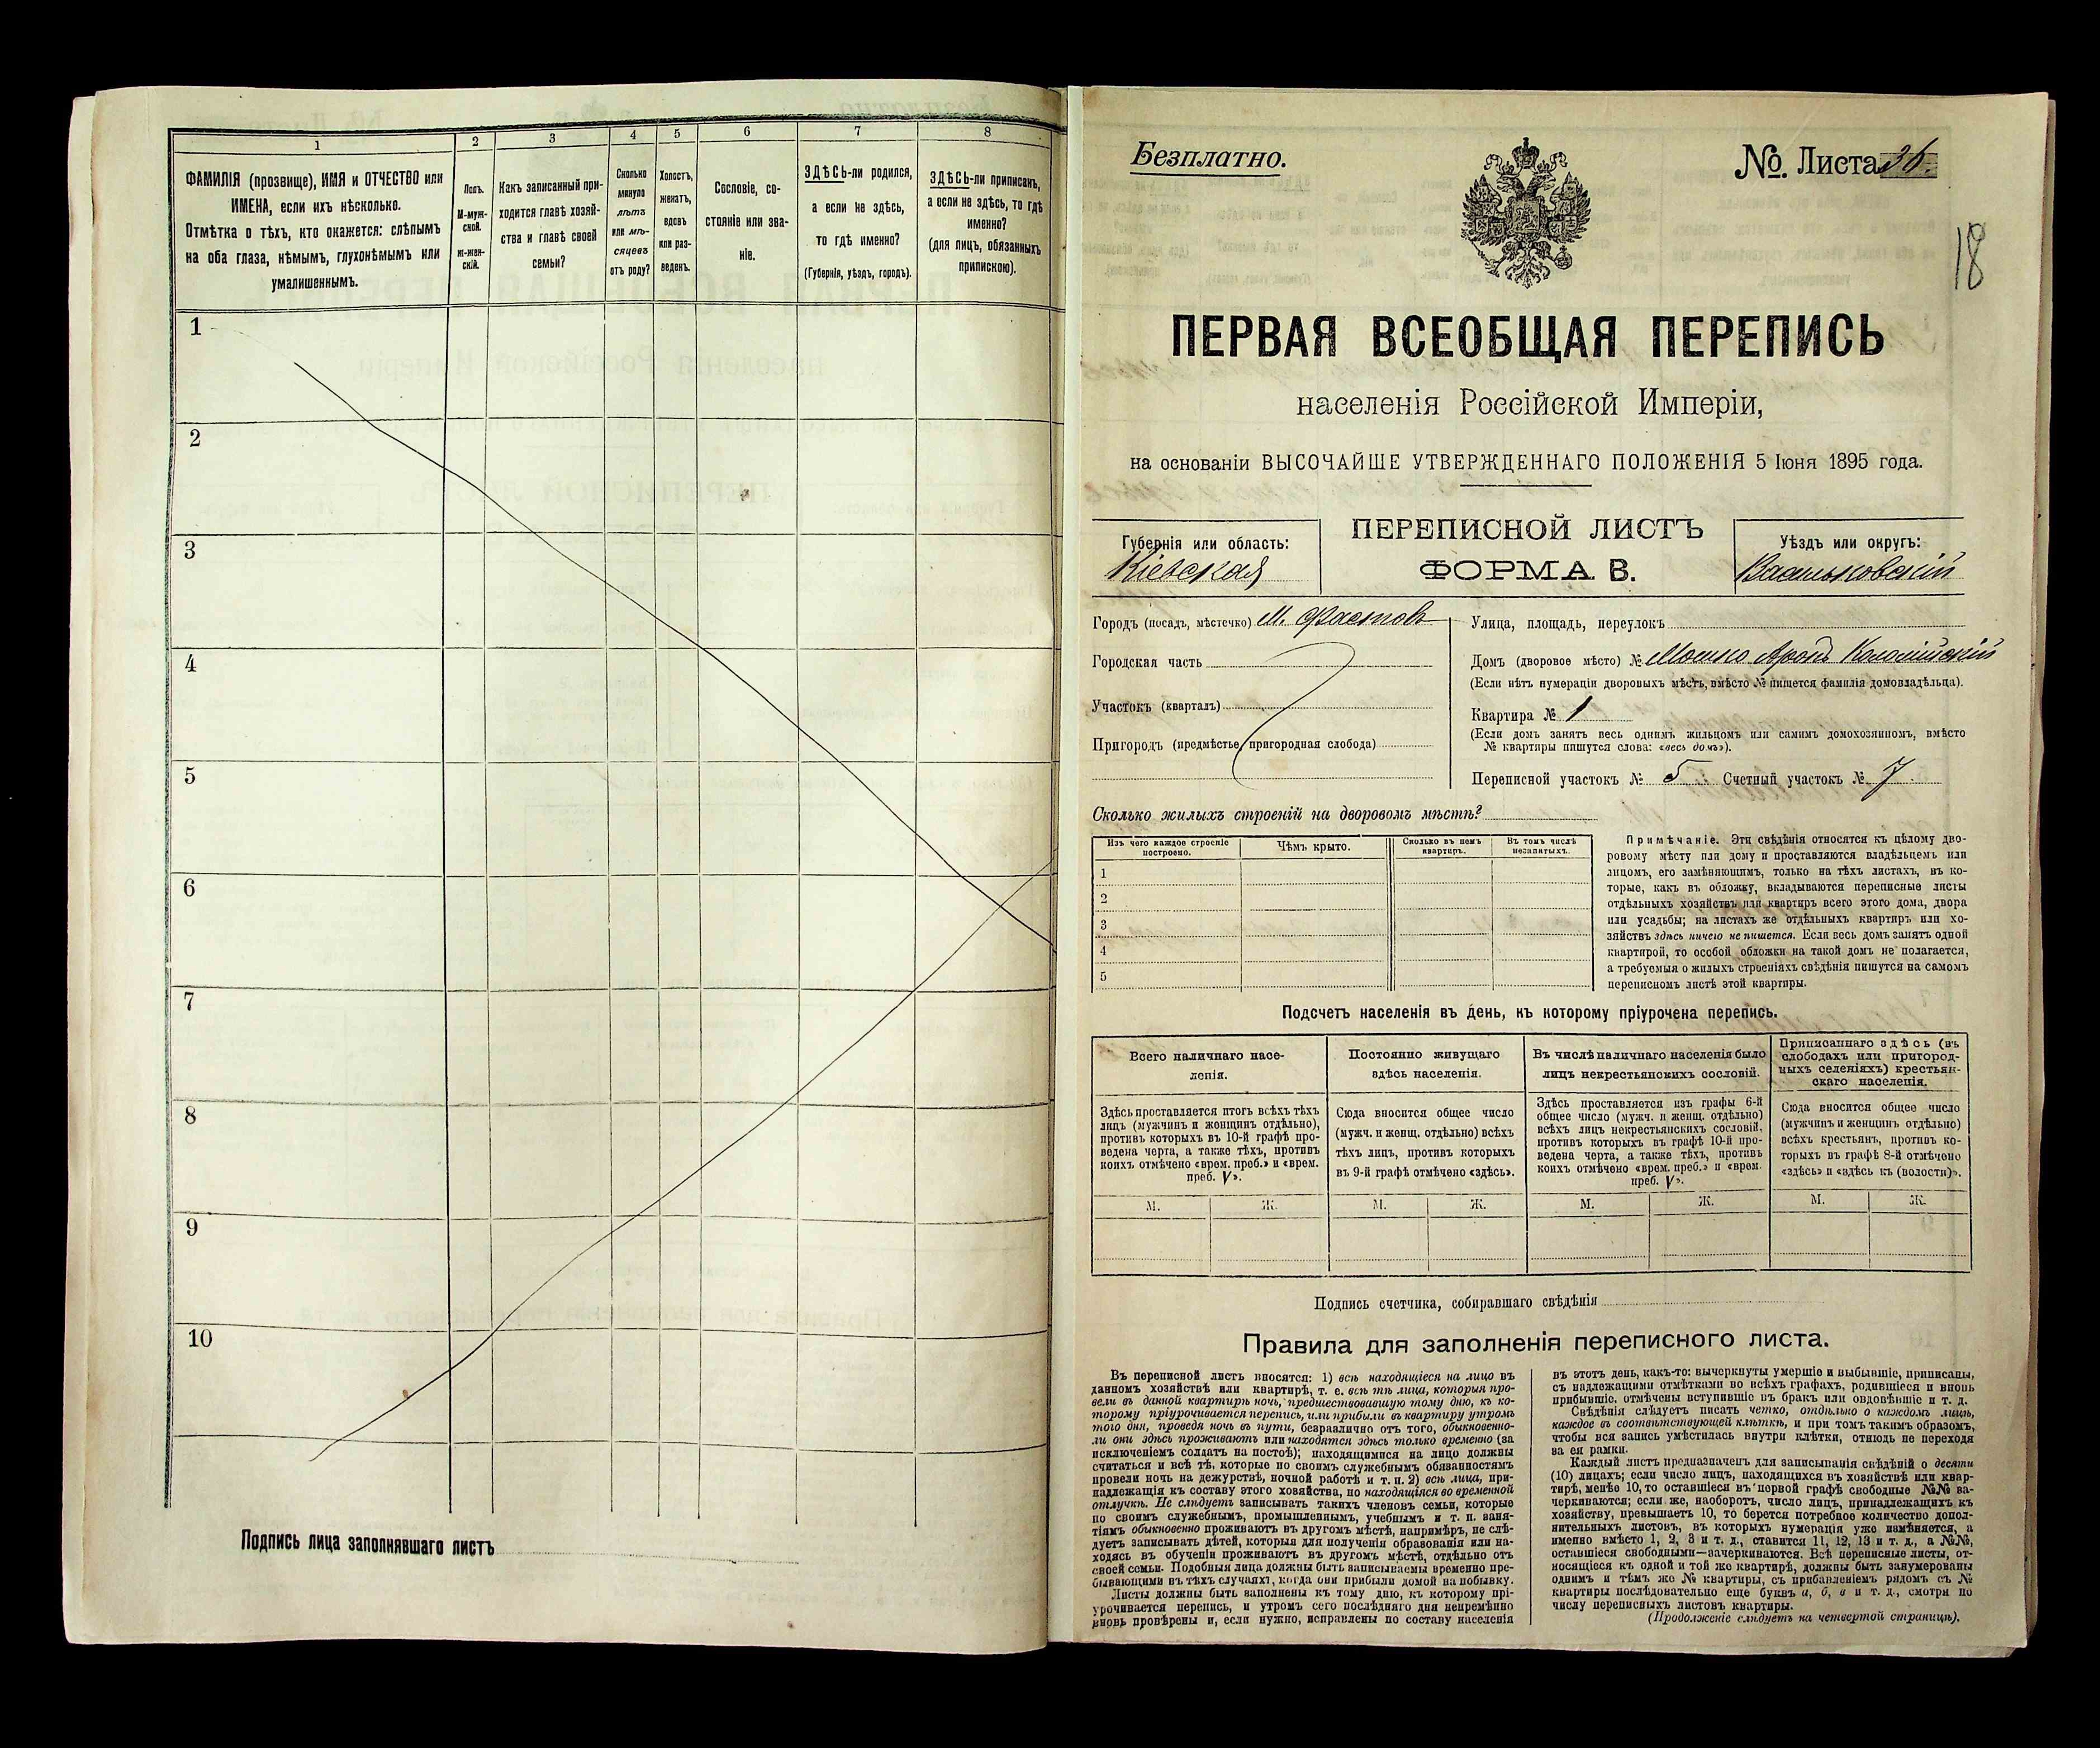 1
2
3
4
5
6
7
8
ФАМИЛІЯ (прозвище), ИМЯ и ОТЧЕСТВО или
ИМЕНА, если ихъ нѣсколько.
Отмѣтка о тѣхъ, кто окажется: слѣпымъ
на оба глаза, нѣмымъ, глухонѣмымъ или
умалишеннымъ.
Полъ.
М-муж-
ской.
Ж-жен-
скій.
Какъ записанный при-
ходится главѣ хозяй-
ства и главѣ своей
семьи?
Сколько
минуло
лѣтъ
или мѣ-
сяцевъ
отъ роду?
Холостъ,
женатъ,
вдовъ
или раз-
веденъ.
Сословіе, со-
стояніе или зва-
ніе.
ЗДѢСЬ-ли родился,
а если не здѣсь,
то гдѣ именно?
(Губернія, уѣздъ, городъ).
ЗДѢСЬ-ли приписанъ,
а если не здѣсь, то гдѣ
именно?
(для лицъ, обязанныхъ
припискою).
1
2
3
4
5
6
7
8
9
10
Подпись лица заполнявшаго листъ
Безплатно.
№. Листа 36.
18
ПЕРВАЯ ВСЕОБЩАЯ ПЕРЕПИСЬ
населенія Россійской Имперіи,
на основаніи ВЫСОЧАЙШЕ УТВЕРЖДЕННАГО ПОЛОЖЕНІЯ 5 Іюня 1895 года.
Губернія или область:
Кіевская
ПЕРЕПИСНОЙ ЛИСТЪ
ФОРМА В.
Уѣздъ или округъ:
Васильковскій
Городъ (посадъ, мѣстечко) М. Фастовъ
Городская часть
Участокъ (кварталъ)
Пригородъ (предмѣстье, пригородная слобода)
Улица, площадь, переулокъ
Домъ (дворовое мѣсто) № Мошко Аронъ Коломійскій
(Если нѣтъ нумераціи дворовыхъ мѣстъ, вмѣсто № пишется фамилія домовладѣльца).
Квартира № 1
(Если домъ занятъ весь однимъ жильцомъ или самимъ домохозяиномъ, вмѣсто
№ квартиры пишутся слова: «весь домъ»).
Переписной участокъ № 5 Счетный участокъ № 7.
Сколько жилыхъ строеній на дворовомъ мѣстѣ?
Изъ чего каждое строеніе
построено.
Чѣмъ крыто.
Сколько въ немъ
квартиръ.
Въ томъ числѣ
незанятыхъ.
1
2
3
4
5
Примѣчаніе. Эти свѣдѣнія относятся къ цѣлому дво-
ровому мѣсту или дому и проставляются владѣльцемъ или
лицомъ, его замѣняющимъ, только на тѣхъ листахъ, въ ко-
торые, какъ въ обложку, вкладываются переписные листы
отдѣльныхъ хозяйствъ или квартиръ всего этого дома, двора
или усадьбы; на листахъ же отдѣльныхъ квартиръ или хо-
зяйствъ здѣсь ничего не пишется. Если весь домъ занятъ одной
квартирой, то особой обложки на такой домъ не полагается,
а требуемыя о жилыхъ строеніяхъ свѣдѣнія пишутся на самомъ
переписномъ листѣ этой квартиры.
Подсчетъ населенія въ день, къ которому пріурочена перепись.
Всего наличнаго насе-
ленія.
Постоянно живущаго
здѣсь населенія.
Въ числѣ наличнаго населенія было
лицъ некрестьянскихъ сословій.
Приписаннаго здѣсь (въ
слободахъ или пригород-
ныхъ селеніяхъ) крестьян-
скаго населенія.
Здѣсь проставляется итогъ всѣхъ тѣхъ
лицъ (мужчинъ и женщинъ отдѣльно),
противъ которыхъ въ 10-й графѣ про-
ведена черта, а также тѣхъ, противъ
коихъ отмѣчено «врем. преб.» и «врем.
преб. V».
Сюда вносится общее число
(мужч. и женщ. отдѣльно) всѣхъ
тѣхъ лицъ, противъ которыхъ
въ 9-й графѣ отмѣчено «здѣсь».
Здѣсь проставляется изъ графы 6-й
общее число (мужч. и женщ. отдѣльно)
всѣхъ лицъ некрестьянскихъ сословій,
противъ которыхъ въ графѣ 10-й про-
ведена черта, а также тѣхъ, противъ
коихъ отмѣчено «врем. преб.» и «врем.
преб. V».
Сюда вносится общее число
(мужчинъ и женщинъ отдѣльно)
всѣхъ крестьянъ, противъ ко-
торыхъ въ графѣ 8-й отмѣчено
«здѣсь» и «здѣсь къ (волости)».
М. Ж. М. Ж. М. Ж. М. Ж.
Подпись счетчика, собиравшаго свѣдѣнія
Правила для заполненія переписного листа.
Въ переписной листъ вносятся: 1) всѣ находящіеся на лицо въ
данномъ хозяйствѣ или квартирѣ, т. е. всѣ тѣ лица, которыя про-
вели въ данной квартирѣ ночь, предшествовавшую тому дню, къ ко-
торому пріурочивается перепись, или прибыли въ квартиру утромъ
того дня, проведя ночь въ пути, безразлично отъ того, обыкновенно-
ли они здѣсь проживаютъ или находятся здѣсь только временно (за
исключеніемъ солдатъ на постоѣ); находящимися на лицо должны
считаться и всѣ тѣ, которые по своимъ служебнымъ обязанностямъ
провели ночь на дежурствѣ, ночной работѣ и т. п. 2) всѣ лица, при-
надлежащія къ составу этого хозяйства, но находящіяся во временной
отлучкѣ. Не слѣдуетъ записывать такихъ членовъ семьи, которые
по своимъ служебнымъ, промышленнымъ, учебнымъ и т. п. заня-
тіямъ обыкновенно проживаютъ въ другомъ мѣстѣ, напримѣръ, не слѣ-
дуетъ записывать дѣтей, которыя для полученія образованія или на-
ходясь въ обученіи проживаютъ въ другомъ мѣстѣ, отдѣльно отъ
своей семьи. Подобныя лица должны быть записываемы временно пре-
бывающими въ тѣхъ случаяхъ, когда они прибыли домой на побывку.
Листы должны быть заполнены къ тому дню, къ которому прі-
урочивается перепись, и утромъ сего послѣдняго дня непремѣнно
вновь провѣрены и, если нужно, исправлены по составу населенія
въ этотъ день, какъ-то: вычеркнуты умершіе и выбывшіе, приписаны,
съ надлежащими отмѣтками во всѣхъ графахъ, родившіеся и вновь
прибывшіе, отмѣчены вступившіе въ бракъ или овдовѣвшіе и т. д.
Свѣдѣнія слѣдуетъ писать четко, отдѣльно о каждомъ лицѣ,
каждое въ соотвѣтствующей клѣткѣ, и при томъ такимъ образомъ,
чтобы вся запись умѣстилась внутри клѣтки, отнюдь не переходя
за ея рамки.
Каждый листъ предназначенъ для записыванія свѣдѣній о десяти
(10) лицахъ; если число лицъ, находящихся въ хозяйствѣ или квар-
тирѣ, менѣе 10, то оставшіеся въ первой графѣ свободные №№ за-
черкиваются; если же, наоборотъ, число лицъ, принадлежащихъ къ
хозяйству, превышаетъ 10, то берется потребное количество допол-
нительныхъ листовъ, въ которыхъ нумерація уже измѣняется, а
именно вмѣсто 1, 2, 3 и т. д., ставится 11, 12, 13 и т. д., а №№,
оставшіеся свободными—зачеркиваются. Всѣ переписные листы, от-
носящіеся къ одной и той же квартирѣ, должны быть занумерованы
однимъ и тѣмъ же № квартиры, съ прибавленіемъ рядомъ съ №
квартиры послѣдовательно еще буквъ а, б, в и т. д., смотря по
числу переписныхъ листовъ квартиры.
(Продолженіе слѣдуетъ на четвертой страницѣ).